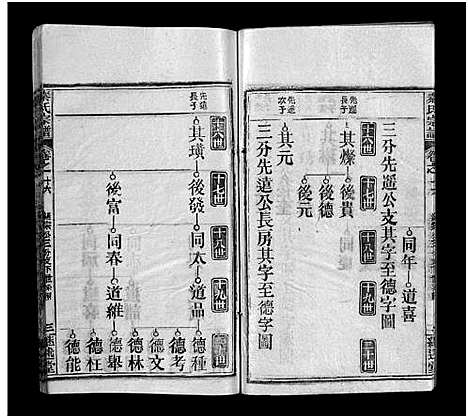 同年 道喜
三分先遥公支其字至德字圖
十六世 十七世 十八世 十九世 二十世
先遥長子 其燦 後貴
後德
後元
先遥次子 其元
三分先遠公長房其字至德字圖
氏宗譜
卷之十六
十六世 十七世 十八世 十九世
先遠長子 其璜 後發 同太 道品 德種
德考
德文
德林
後富 同春 道維 德舉
德枉
德能
三
堂